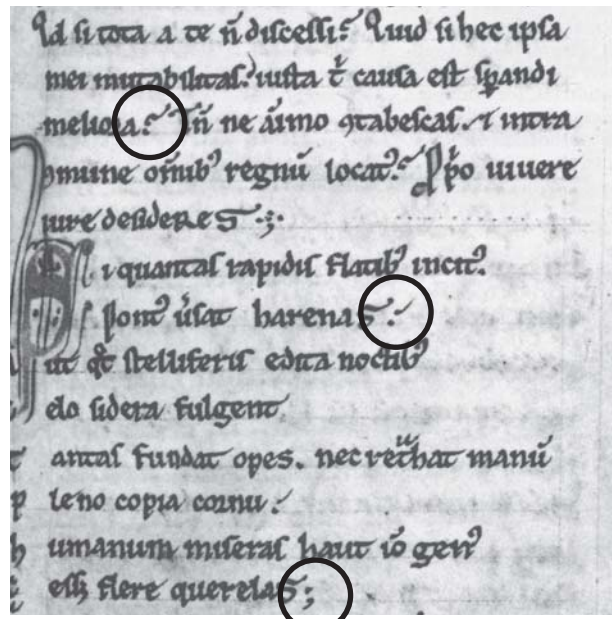 Qđ si tota a te n̄ discessi? Quid si hec ipsa
mei mutabilitas? iusta t̉ causa est sꝑandi
meliora? Tn̄ ne aĩmo ꝯtabescas. ⁊ intra
ꝯmune om̄ib⁹ regnũ locat⁹. Pp̉o uiuere
iure desideres.
Si quantas rapidis flatib⁹ incit⁹.
Pont⁹ ũsat harenas.
ut qđ stelliferis edita noctib⁹
elo sidera fulgent.
antas fundat opes. nec ret̉hat manũ
leno copia cornu.
umanum miseras haut iõ gen⁹
essꝫ flere querelas;